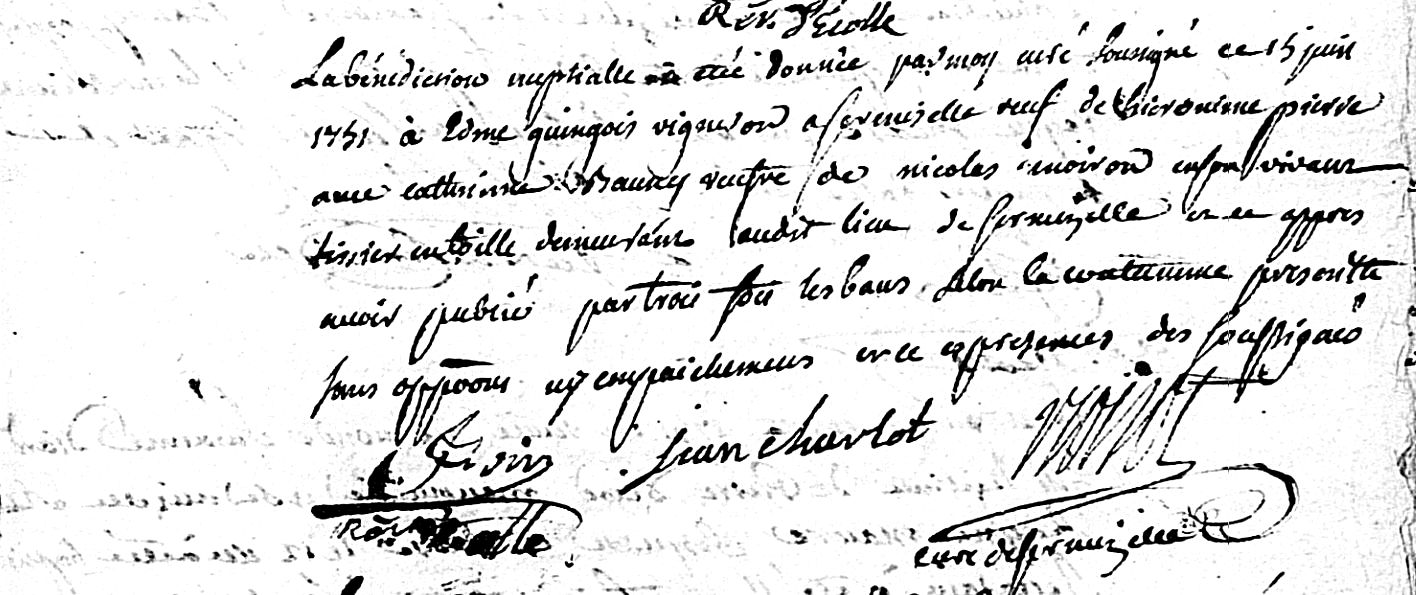 Rév. d'Ecolle
La bénédiction nuptialle été donnée par moy curé sousigné ce 15 juin
1751 à Edme guingois vigneron a sermizelle veuf de hieronime pierre
avec catherinne veufve de nicolas moiron en son vivant
tissier en toille demeurant audit lieu de sermizelle et ce appres
avoir publié par trois fois les bans selon la coutumme presentte
sans oppoons ny empaichemens et ce es presences des soussignés
jean charlot
curé de sermizelle